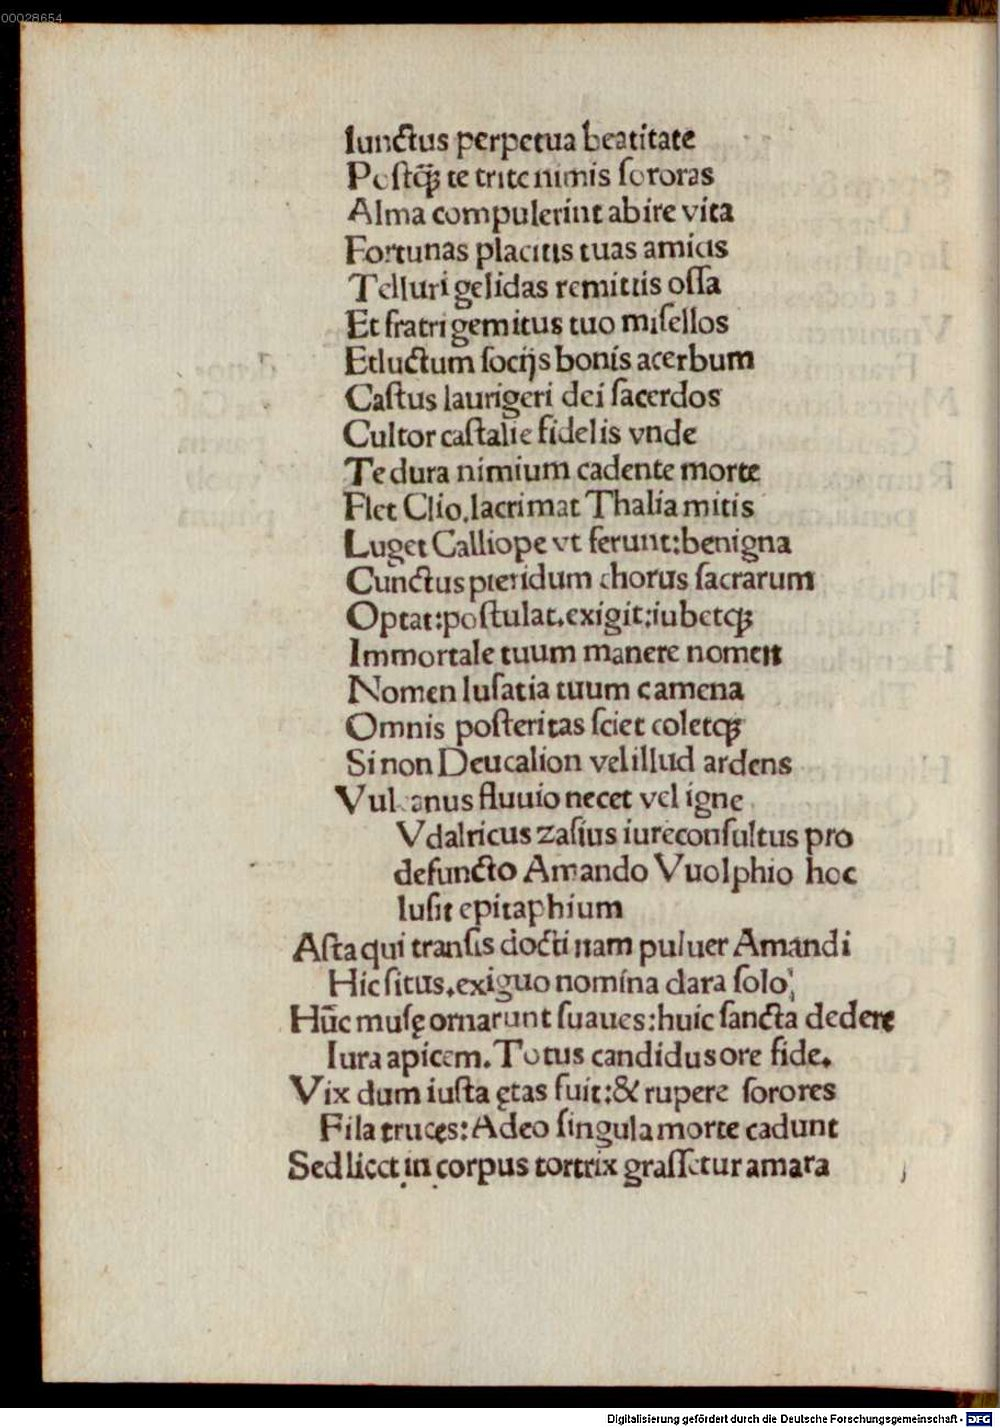 00028654
Iunctus perpetua beatitate
Postq̃ꝫ te trite nimis sorores
Alma compulerint abire vita
Fortunas placitis tuas amicis
Telluri gelidas remittis ossa
Et fratri gemitus tuo misellos
Et luctum socijs bonis acerbum
Castus laurigeri dei sacerdos
Cultor castalie fidelis vnde
Te dura nimium cadente morte
Flet Clio, lacrimat Thalia mitis
Luget Calliope vt ferunt: benigna
Cunctus pieridum chorus sacrarum
Optat: postulat. exigit: iubetqꝫ
Immortale tuum manere nomen
Nomen lusatia tuum camena
Omnis posteritas sciet coletqꝫ
Si non Deucalion vel illud ardens
Vulcanus fluuio necet vel igne
Vdalricus zasius iureconsultus pro
defuncto Amando Vuolphio hoc
lusit epitaphium
Asta qui transis docti nam puluer Amandi
Hic situs. exiguo nomina clara solo
Hūc musę ornarunt suaues: huic sancta dedere
Iura apicem. Totus candidus ore fide.
Vix dum iusta ętas fuit: & rupere sorores
Fila truces: Adeo singula morte cadunt
Sed licet in corpus tortrix grassetur amara
Digitalisierung gefördert durch die Deutsche Forschungsgemeinschaft - DFG